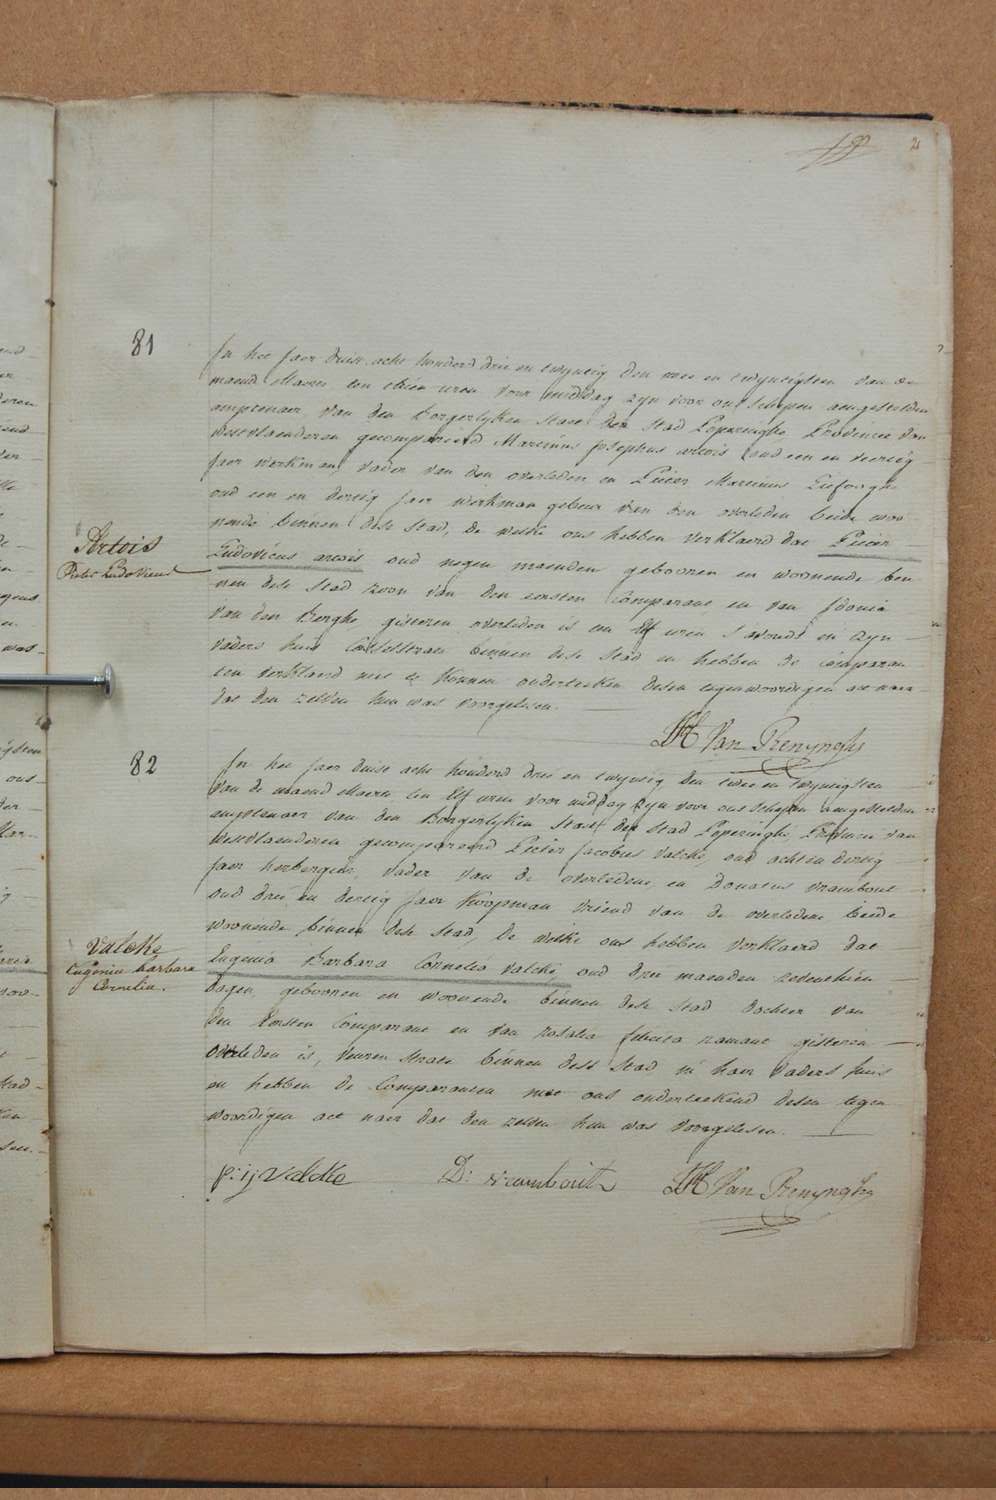 21
81
In het Jaer duist acht honderd drie en twyntig den twee en twyntigsten van de
maend Maerte ten elven uren voor middag zyn voor ons schepen aengestelden
amptenaer van den Borgerlyken Staet der Stad Poperinghe Provincie van
Westvlaenderen gecompareerd Martinus Josephus artois oud een en veertig
Jaer werkman, vader van den overleden en Pieter Martinus
oud een en dertig Jaer werkman gebeur van den overleden beide woo
nende binnen dese Stad, de welke ons hebben verklaerd dat Pieter
Ludovicus artois oud negen maenden gebooren en woonende bin
nen dese Stad zoon van den eersten Comparant en van Idonia
Van den Berghe gisteren overleden is ten elf uren s'avonds in zyn
vaders huis Casselstraet binnen dese Stad en hebben de Comparan
ten verklaerd niet te konnen onderteeken desen tegenwoordigen act naer
dat den zelven hun was voorgelesen.
Artois
Pieter Ludovicus
Van Renynghe
82
In het Jaer duist acht honderd drie en twyntig den twee en twyntigsten
van de maend Maerte ten Elf uren voor middag zyn voor ons schepen aengestelden
amptenaer van den Borgerlyken Staet der Stad Poperinghe, Provincie van
Westvlaenderen gecompareerd Pieter Jacobus Valcke, oud acht en dertig
Jaer herbergier, vader van de overledene, en Donatus vrambout
oud drie en dertig Jaer Koopman vriend van de overledene beide
woonende binnen dese Stad, De welke ons hebben verklaerd dat
Eugenia Barbara Cornelia Valcke, oud drie maenden zeventhien
dagen, gebooren en woonende binnen dese Stad dochter van
den Eersten Comparant en van Rosalia gisteren
Overleden is, straete binnen dese Stad in haer vaders huis
en hebben de Comparanten met ons onderteekend desen tegen
woordigen act naer dat den zelven hun was voorgelesen.
Valcke
Eugenia barbara
Cornelia.
p: ij Valcke D: vrambout Van Renynghe